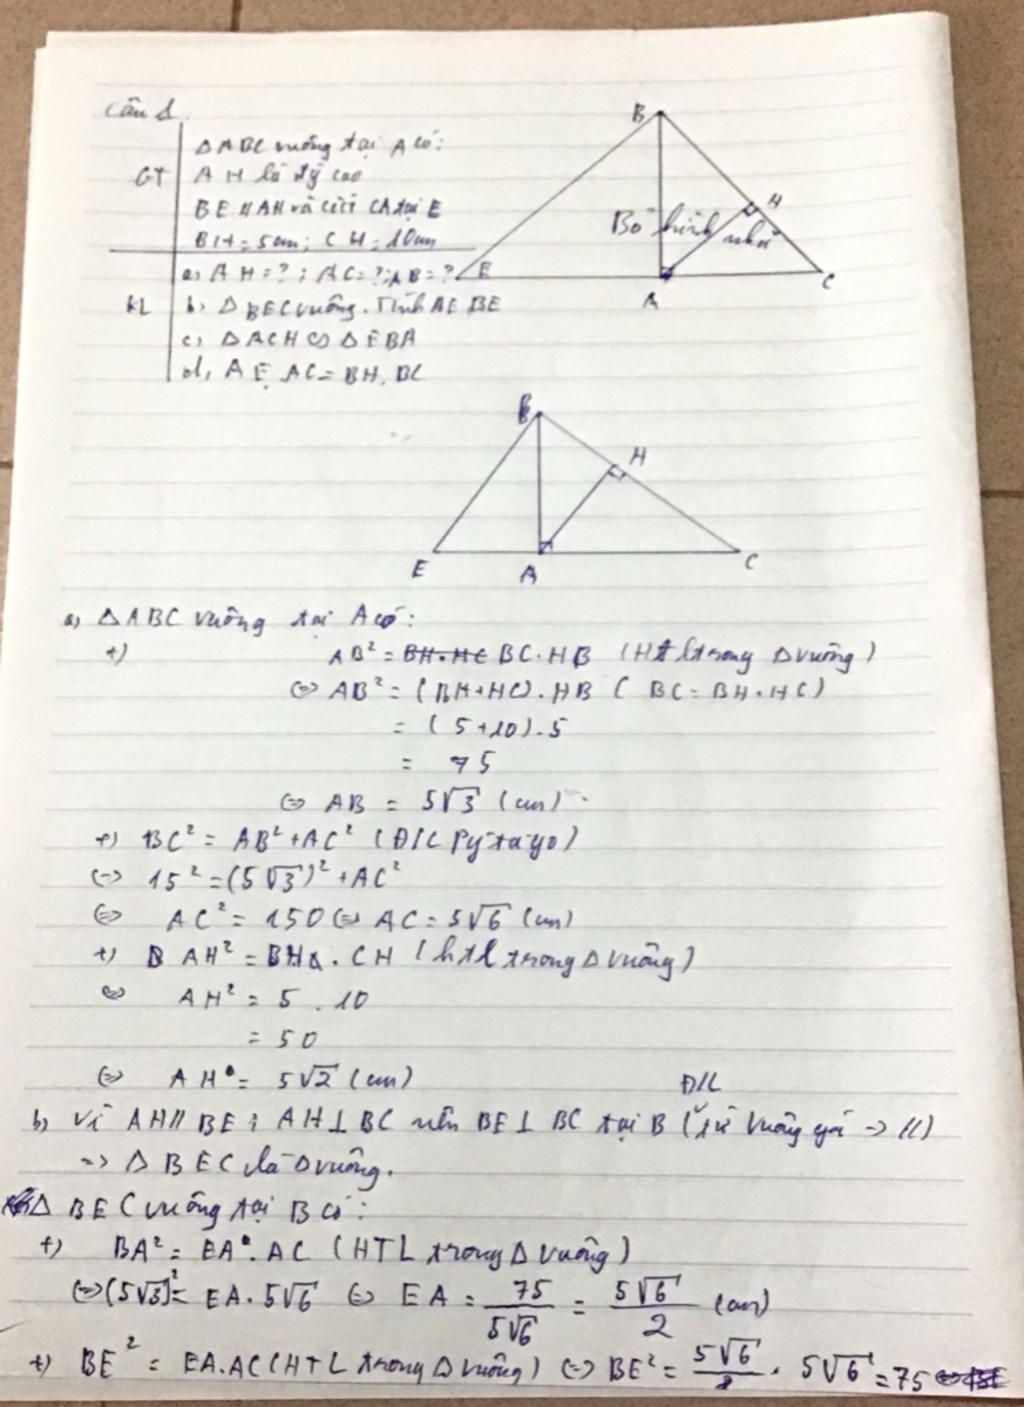 Câu 1
ΔABC vuông tại A có:
GT AH là đg cao
BE // AH và cắt CA tại E
BH = 5cm; CH = 10cm
a) AH = ?; AC = ?; AB = ?
KL b) ΔBEC vuông. Tính AE BE
c) ΔACH ∽ ΔEBA
d, AE. AC = BH. BC
B
H
Bỏ hình nhá
E
A
C
B
H
E
A
C
a, ΔABC vuông tại A có:
+) AB² = BH.HC BC.HB (HTL trong Δ vuông)
⇔ AB² = (BH+HC).HB ( BC = BH.HC)
= (5+10).5
= 75
⇔ AB = 5√3 (cm)
+) BC² = AB² + AC² (Đ/L Py-ta-go)
⇔ 15² = (5√3)² + AC²
⇔ AC² = 150 ⇔ AC = 5√6 (cm)
+) AH² = BH. CH (htl trong Δ vuông)
⇔ AH² = 5 . 10
= 50
⇔ AH = 5√2 (cm)
Đ/L
b) Vì AH // BE; AH ⊥ BC nên BE ⊥ BC tại B (từ vuông góc -> //)
=> ΔBEC là Δ vuông.
Δ BEC vuông tại B có:
+) BA² = EA. AC (HTL trong Δ vuông)
⇔ (5√3)² = EA. 5√6 ⇔ EA = 75/5√6 = 5√6/2 (cm)
+) BE² = EA.AC (HTL trong Δ vuông) ⇔ BE² = 5√6/2 . 5√6 = 75